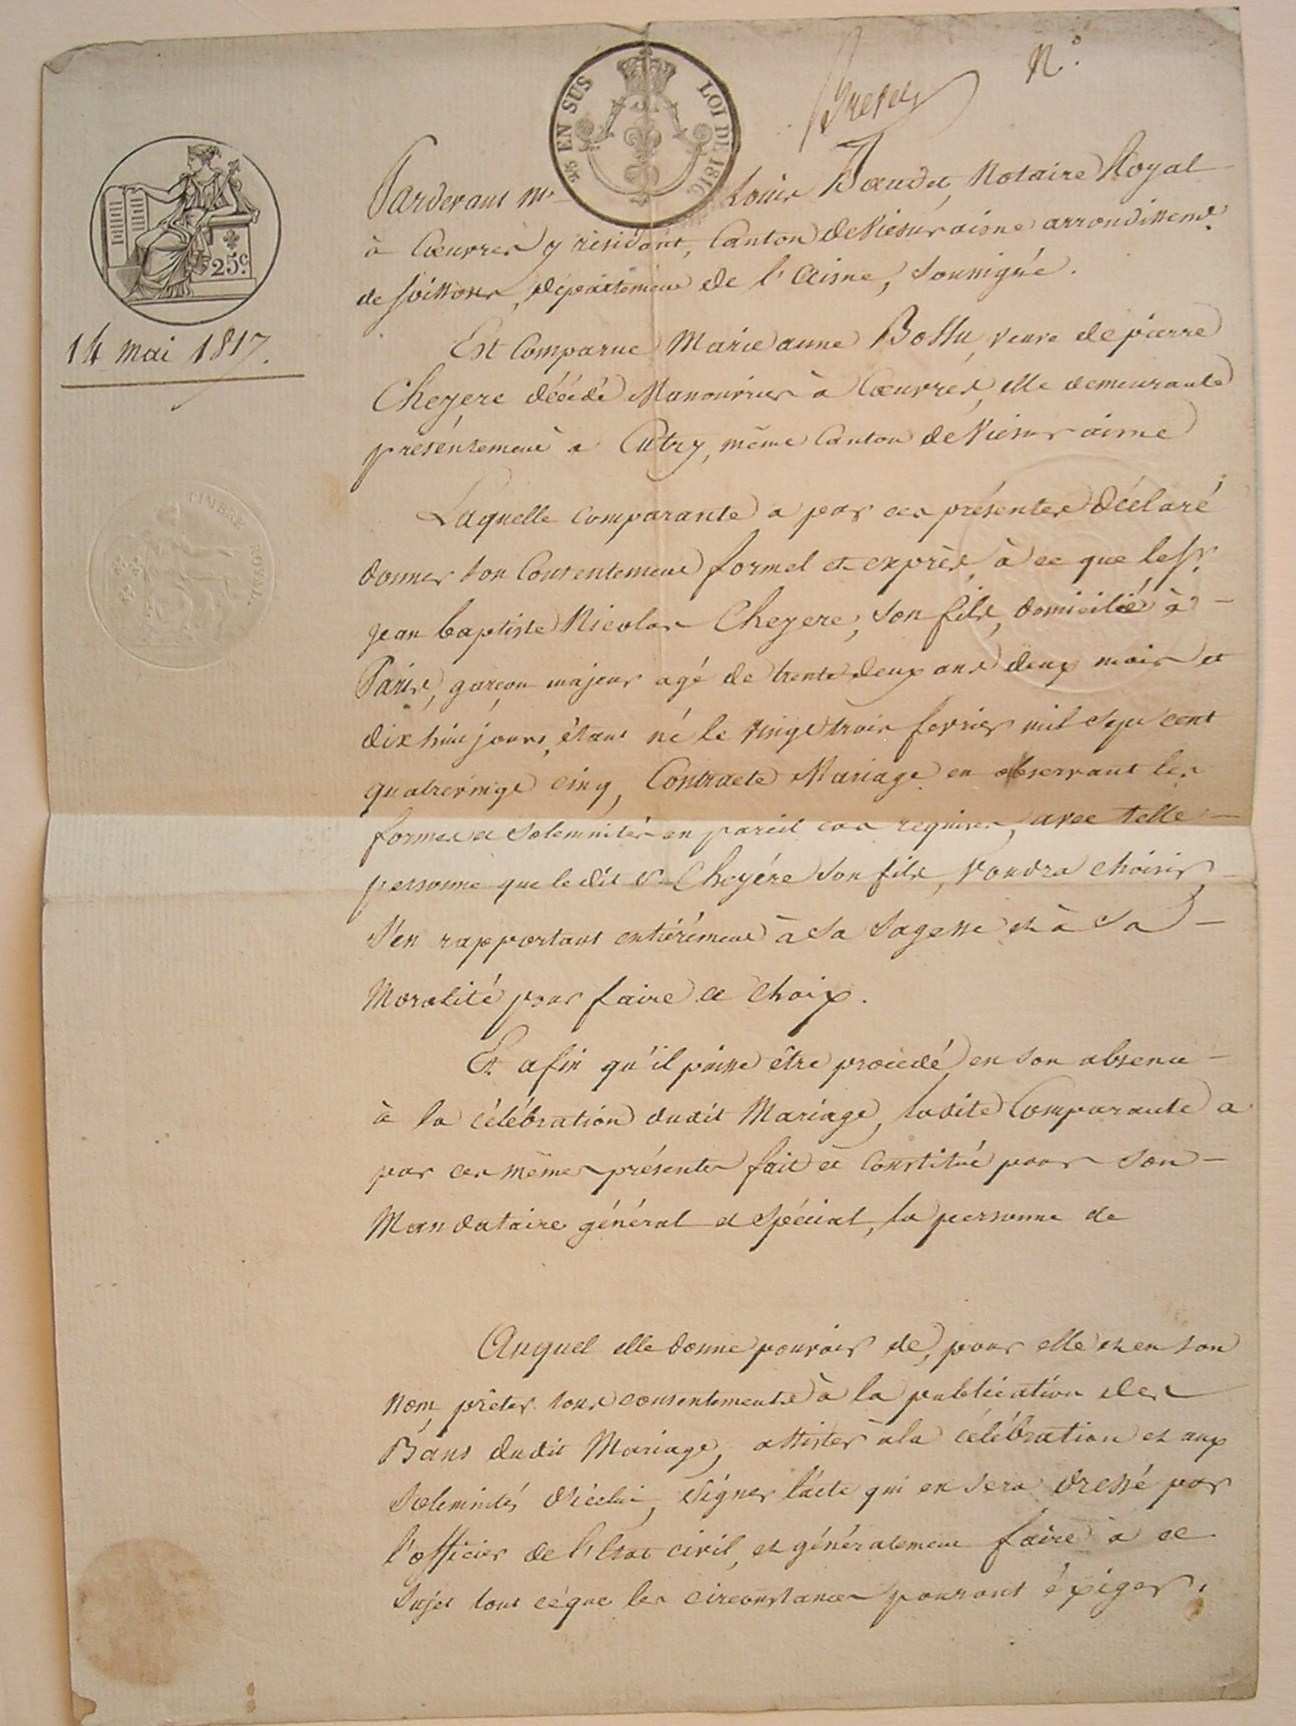 25.es EN SUS
LOI DE 1816
Brevet
N.°
25.c
TIMBRE ROYAL
14 mai 1817.
Pardevant Me Louis Notaire Royal
à Cœuvres y résidant, Canton de Vicsuraisne arrondissemt.
de Soissons, département de l'Aisne, soussigné.
Est Comparue Marie anne Bossu, veuve de pierre
Cheyere décédé Manouvrier à Cœuvres, elle demeurante
présentement à Cutry, même Canton de Vicsuraisne
Laquelle comparante a par ces présentes déclaré
donner son Consentement formel et exprès, à ce que le Sr.
jean baptiste Nicolas Cheyere, son fils, domicilié à
Paris, garçon majeur agé de trente deux ans deux mois et
dix huit jours, étant né le vingt trois fevrier mil sept cent
quatrevingt cinq, Contracte Mariage en observant les
formes et solemnités en pareil cas requises, avec telle
personne que ledit Sr Cheyére son fils, voudra choisir,
s'en rapportant entiérément à sa sagesse et à sa
Moralité pour faire ce choix.
Et afin qu'il puisse être procédé en son absence
à la célébration dudit Mariage, ladite Comparante a
par ces mêmes présentes fait et Constitué pour son
Mandataire général et spécial, la personne de
Auquel elle donne pouvoir de, pour elle et en son
nom, prêter tous consentements à la publication des
Bans dudit Mariage, assister à la célébration et aux
solemnités d'icelui, signer l'acte qui en sera dressé par
l'officier de l'Etat civil, et généralement faire à ce
sujet tout céque les circonstances pouront éxiger.